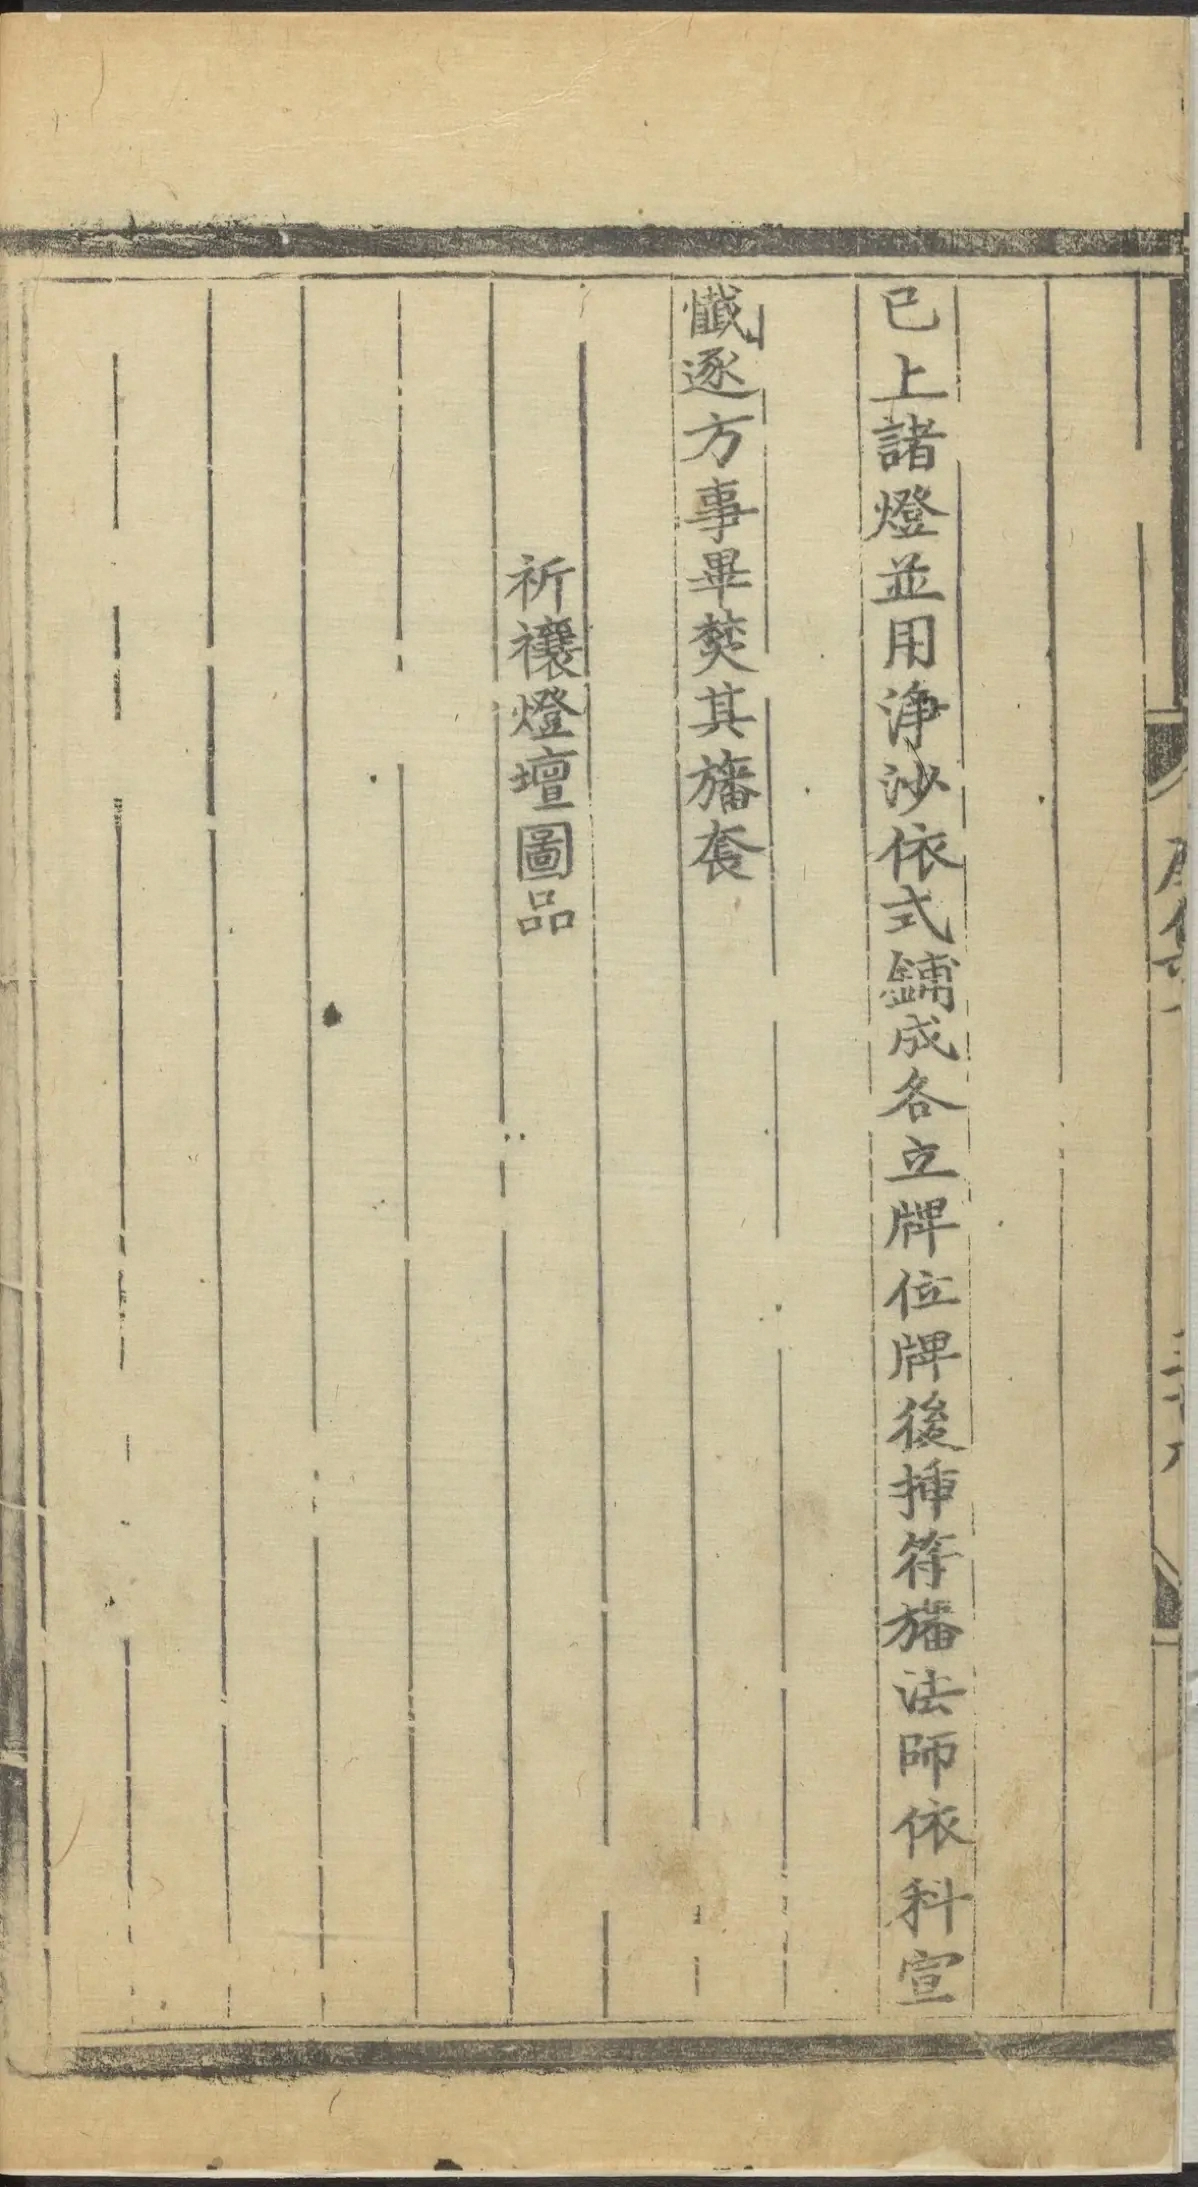 已上諸燈並用淨沙依式鋪成各立牌位牌後揷符旛法師依科宣
懴逐方事畢焚其旛衮
祈禳燈壇圖品